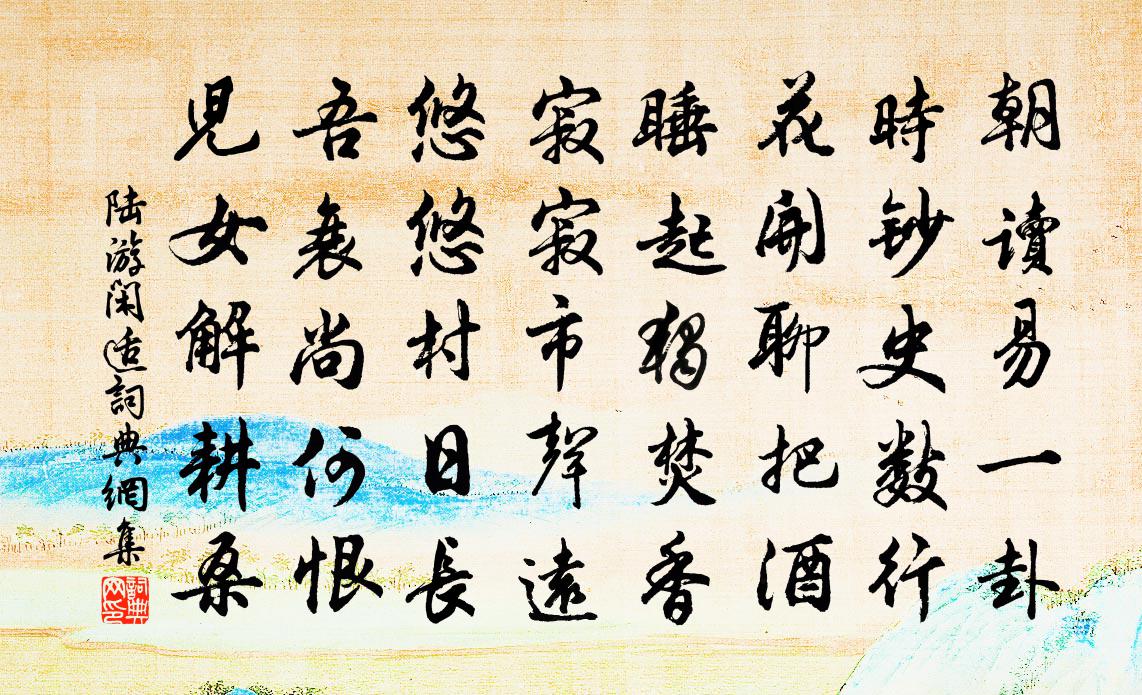 朝讀易一卦
時鈔史數行
花開聊把酒
睡起獨焚香
寂寂市聲遠
悠悠村日長
吾衰尚何恨
兒女解耕桑
陆游闲适詞典網集
詞典網印